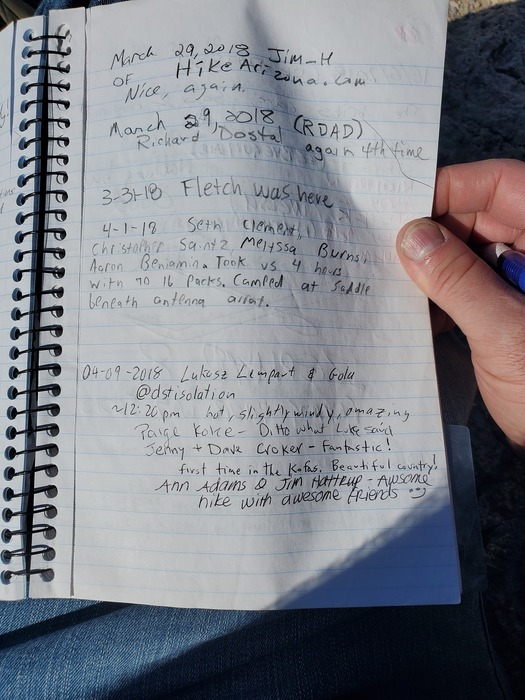 March 29, 2018 Jim-H
OF HikeArizona.com
Nice, again.
March 29, 2018 (RDAD)
Richard Dostal again 4th time
3-31-18 Fletch was here
4-1-18 Seth Clement,
Christopher Saintz Melyssa Burns,
Aaron Benjamin. Took us 4 hours
with 70 lb Packs. Camped at Saddle
beneath antenna array.
04-09-2018 Lukasz Lempart & Gola
@dstisolation
~12:26pm hot, slightly windy, amazing
Paige - Ditto what Luke said
Jenny + Dave Croker - Fantastic!
first time in the Kofas. Beautiful country!
Ann Adams & Jim Hattrup - Awsome
hike with awesome friends ☺